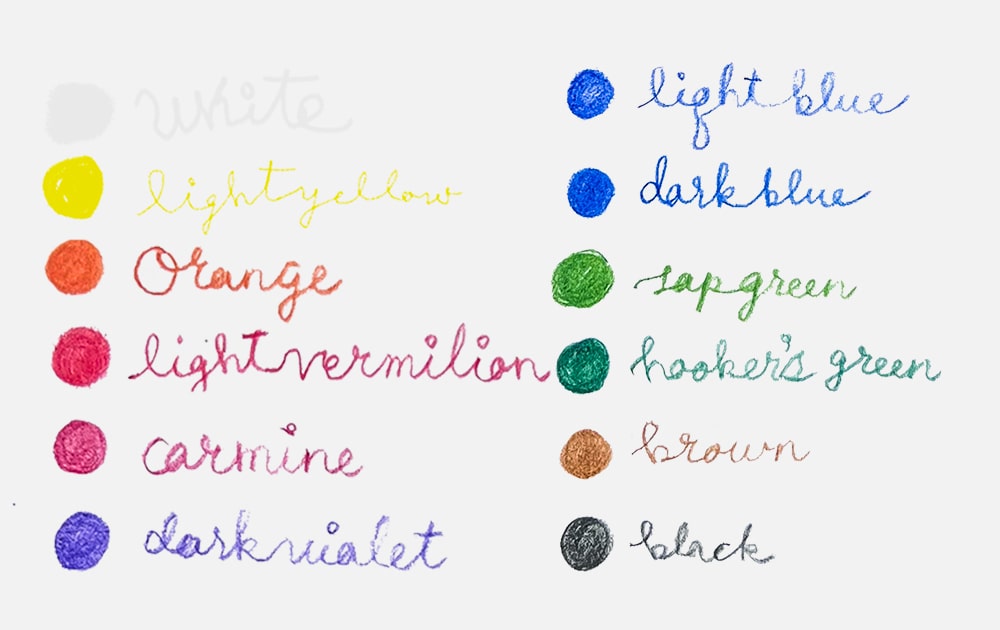 white
light yellow
Orange
light vermilion
carmine
dark vialet
light blue
dark blue
sap green
hooker's green
brown
black